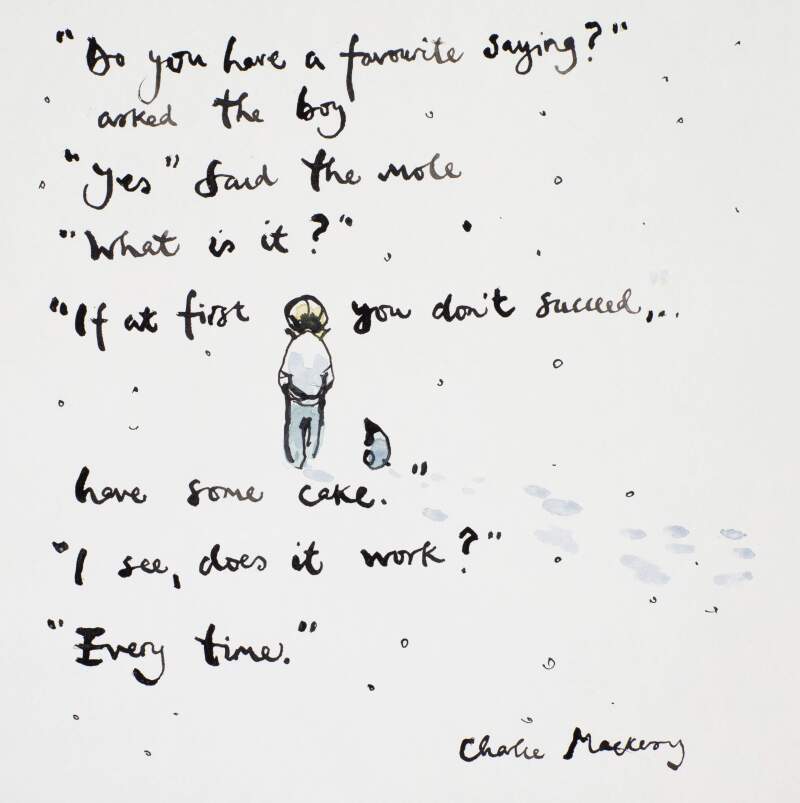 "Do you have a favourite saying?"
asked the boy
"Yes" said the mole
"What is it?"
"If at first you don't succeed,...
have some cake."
"I see, does it work?"
"Every time."
Charlie Mackesy